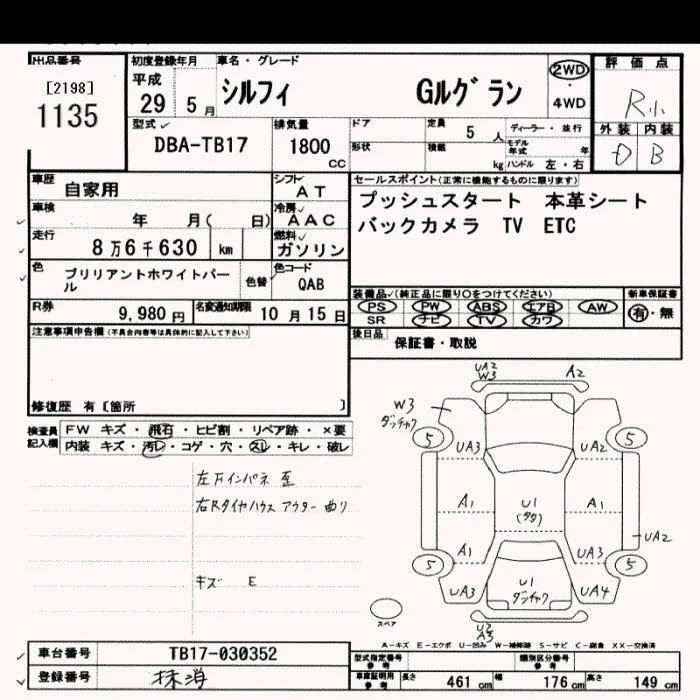 出品番号
[2198]
1135
初度登録年月
平成
29 5月
車名・グレード
シルフィ Gルグラン
2WD
・
4WD
評価点
R小
外装 内装
D B
型式
DBA-TB17
排気量
1800
cc
ドア
定員 5 人
形状
積載 kg
ディーラー・並行
モデル年式 年
ハンドル 左・右
車歴
自家用
シフト
AT
車検
年 月( 日)
冷房
AAC
走行
8万6千630 km
燃料
ガソリン
色
ブリリアントホワイトパール
色替
色コード
QAB
R券
9,980 円
名変通知期限
10月15日
セールスポイント(正常に機能するものに限ります)
プッシュスタート 本革シート
バックカメラ TV ETC
装備品(純正品に限り○をつけてください)
PS PW ABS エアB AW
SR ナビ TV カワ
新車保証書
有・無
後日品
保証書・取説
注意事項申告欄(不具合内容等は具体的に記入して下さい)
修復歴 有〔箇所 〕
検査員記入欄
FW キズ・飛石・ヒビ割・リペア跡・×要
内装 キズ・汚レ・コゲ・穴・スレ・キレ・破レ
左Fインパネ 歪
右Rタイヤハウス アウター 曲り
キズ E
UA2
W3
A2
W3
ダンチャク
5
5
UA3
UA2
A1
U1
(タタ)
A1
UA2
A1
UA3
5
5
UA3
U1
ダンチャク
UA4
U2
A3
スペア
A-キズ E-エクボ U-凹み W-補修跡 S-サビ C-腐食 XX-交換済
車台番号
TB17-030352
登録番号
抹消
型式指定番号
参考
類別区分番号
参考
車庫証明用
参考
長さ 461 cm
幅 176 cm
高さ 149 cm